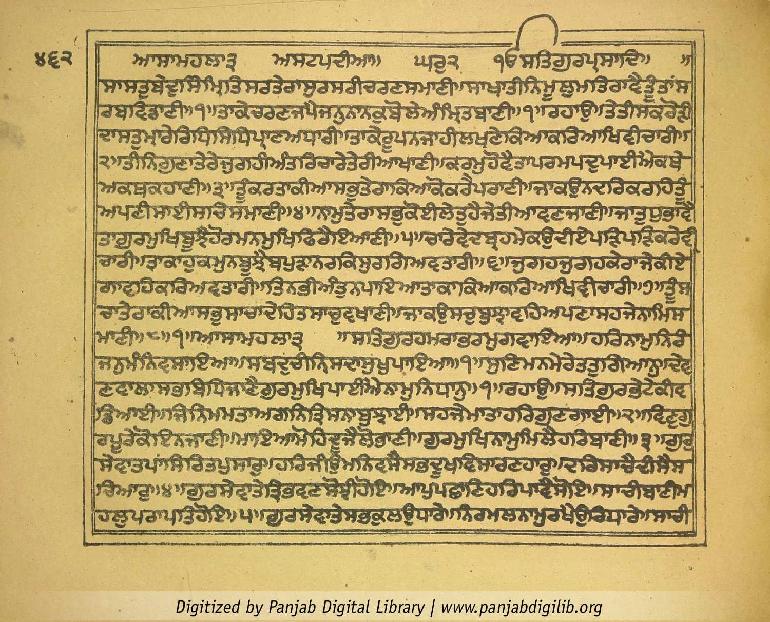 ੪੬੨
ਆਸਾਮਹਲਾ੩ ਅਸਟਪਦੀਆ॥ ਘਰੁ੨ ੴਸਤਿਗੁਰਪ੍ਰਸਾਦਿ॥ ॥
ਸਾਸਤੁਬੇਦੁਸਿੰਮ੍ਰਿਤਿਸਰੁਤੇਰਾਸੁਰਸਰੀਚਰਣਸਮਾਣੀ॥ਸਾਖਾਤੀਨਿਮੂਲੁਮਤਿਰਾਵੈਤੂੰਤਾਂਸ
ਰਬਵਿਡਾਣੀ॥੧॥ਤਾਕੇਚਰਣਜਪੈਜਨੁਨਾਨਕੁਬੋਲੇਅੰਮ੍ਰਿਤਬਾਣੀ॥੧॥ਰਹਾਉ॥ਤੇਤੀਸਕਰੋੜੀ
ਦਾਸਤੁਮਾਰੇਰਿਧਿਸਿਧਿਪ੍ਰਾਣਅਧਾਰੀ॥ਤਾਕੇਰੂਪਨਜਾਹੀਲਖਣੇਕਿਆਕਰਿਆਖਿਵੀਚਾਰੀ॥
੨॥ਤੀਨਿਗੁਣਾਤੇਰੇਜੁਗਹੀਅੰਤਰਿਚਾਰੇਤੇਰੀਆਖਾਣੀ॥ਕਰਮੁਹੋਵੈਤਾਪਰਮਪਦੁਪਾਈਐਕਥੇ
ਅਕਥਕਹਾਣੀ॥੩॥ਤੂੰਕਰਤਾਕੀਆਸਭੁਤੇਰਾਕਿਆਕੋਕਰੇਪਰਾਣੀ॥ਜਾਕਉਨਦਰਿਕਰਹਿਤੂੰ
ਅਪਣੀਸਾਈਸਚਿਸਮਾਣੀ॥੪॥ਨਾਮੁਤੇਰਾਸਭੁਕੋਈਲੇਤੁਹੈਜੇਤੀਆਵਣਜਾਣੀ॥ਜਾਤੁਧੁਭਾਵੈ
ਤਾਗੁਰਮੁਖਿਬੂਝੈਹੋਰਮਨਮੁਖਿਫਿਰੈਇਆਣੀ॥੫॥ਚਾਰੇਵੇਦਬ੍ਰਹਮੇਕਉਦੀਏਪੜਿਪੜਿਕਰੇਵੀ
ਚਾਰੀ॥ਤਾਕਾਹੁਕਮੁਨਬੂਝੈਬਪੁੜਾਨਰਕਿਸੁਰਗਿਅਵਤਾਰੀ॥੬॥ਜੁਗਹਜੁਗਹਕੇਰਾਜੇਕੀਏ
ਗਾਵਹਿਕਰਿਅਵਤਾਰੀ॥ਤਿਨਭੀਅੰਤੁਨਪਾਇਆਤਾਕਾਕਿਆਕਰਿਆਖਿਵੀਚਾਰੀ॥੭॥ਤੂੰਸ
ਚਾਤੇਰਾਕੀਆਸਭੁਸਾਚਾਦੇਹਿਤਸਾਚੁਵਖਾਣੀ॥ਜਾਕਉਸਚੁਬੁਝਾਵਹਿਅਪਣਾਸਹਜੇਨਾਮਿਸ
ਮਾਣੀ॥੮॥੧॥ਆਸਾਮਹਲਾ੩ ॥ਸਤਿਗੁਰਹਮਰਾਭਰਮੁਗਵਾਇਆ॥ਹਰਿਨਾਮੁਨਿਰੰ
ਜਨੁਮੰਨਿਵਸਾਇਆ॥ਸਬਦੁਚੀਨਿਸਦਾਸੁਖੁਪਾਇਆ॥੧॥ਸੁਣਿਮਨਮੇਰੇਤਤੁਗਿਆਨੁ॥ਦੇਵ
ਣਵਾਲਾਸਭਬਿਧਿਜਾਣੈਗੁਰਮੁਖਿਪਾਈਐਨਾਮੁਨਿਧਾਨੁ॥੧॥ਰਹਾਉ॥ਸਤਿਗੁਰਭੇਟੇਕੀਵ
ਡਿਆਈ॥ਜਿਨਿਮਮਤਾਅਗਨਿਤ੍ਰਿਸਨਾਬੁਝਾਈ॥ਸਹਜੇਮਾਤਾਹਰਿਗੁਣਗਾਈ॥੨॥ਵਿਣੁਗੁ
ਰਪੂਰੇਕੋਇਨਜਾਣੀ॥ਮਾਇਆਮੋਹਿਦੂਜੈਲੋਭਾਣੀ॥ਗੁਰਮੁਖਿਨਾਮੁਮਿਲੈਹਰਿਬਾਣੀ॥੩॥ਗੁਰ
ਸੇਵਾਤਪਾਂਸਿਰਿਤਪੁਸਾਰੁ॥ਹਰਿਜੀਉਮਨਿਵਸੈਸਭਦੂਖਵਿਸਾਰਣਹਾਰੁ॥ਦਰਿਸਾਚੈਦੀਸੈਸ
ਚਿਆਰੁ॥੪॥ਗੁਰਸੇਵਾਤੇਤ੍ਰਿਭਵਣਸੋਝੀਹੋਇ॥ਆਪੁਪਛਾਣਿਹਰਿਪਾਵੈਸੋਇ॥ਸਾਚੀਬਾਣੀਮ
ਹਲੁਪਰਾਪਤਿਹੋਇ॥੫॥ਗੁਰਸੇਵਾਤੇਸਭਕੁਲਉਧਾਰੇ॥ਨਿਰਮਲਨਾਮੁਰਖੈਉਰਿਧਾਰੇ॥ਸਾਚੀ
Digitized by Panjab Digital Library | www.panjabdigilib.org